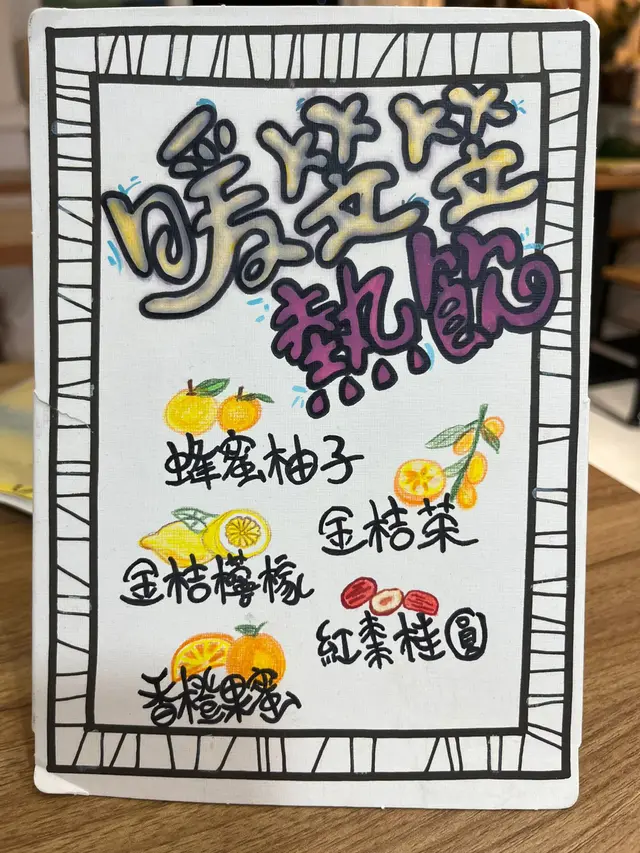 暖笠笠
熱飲
蜂蜜柚子
金桔茶
金桔檸檬
紅棗桂圓
香橙果蜜